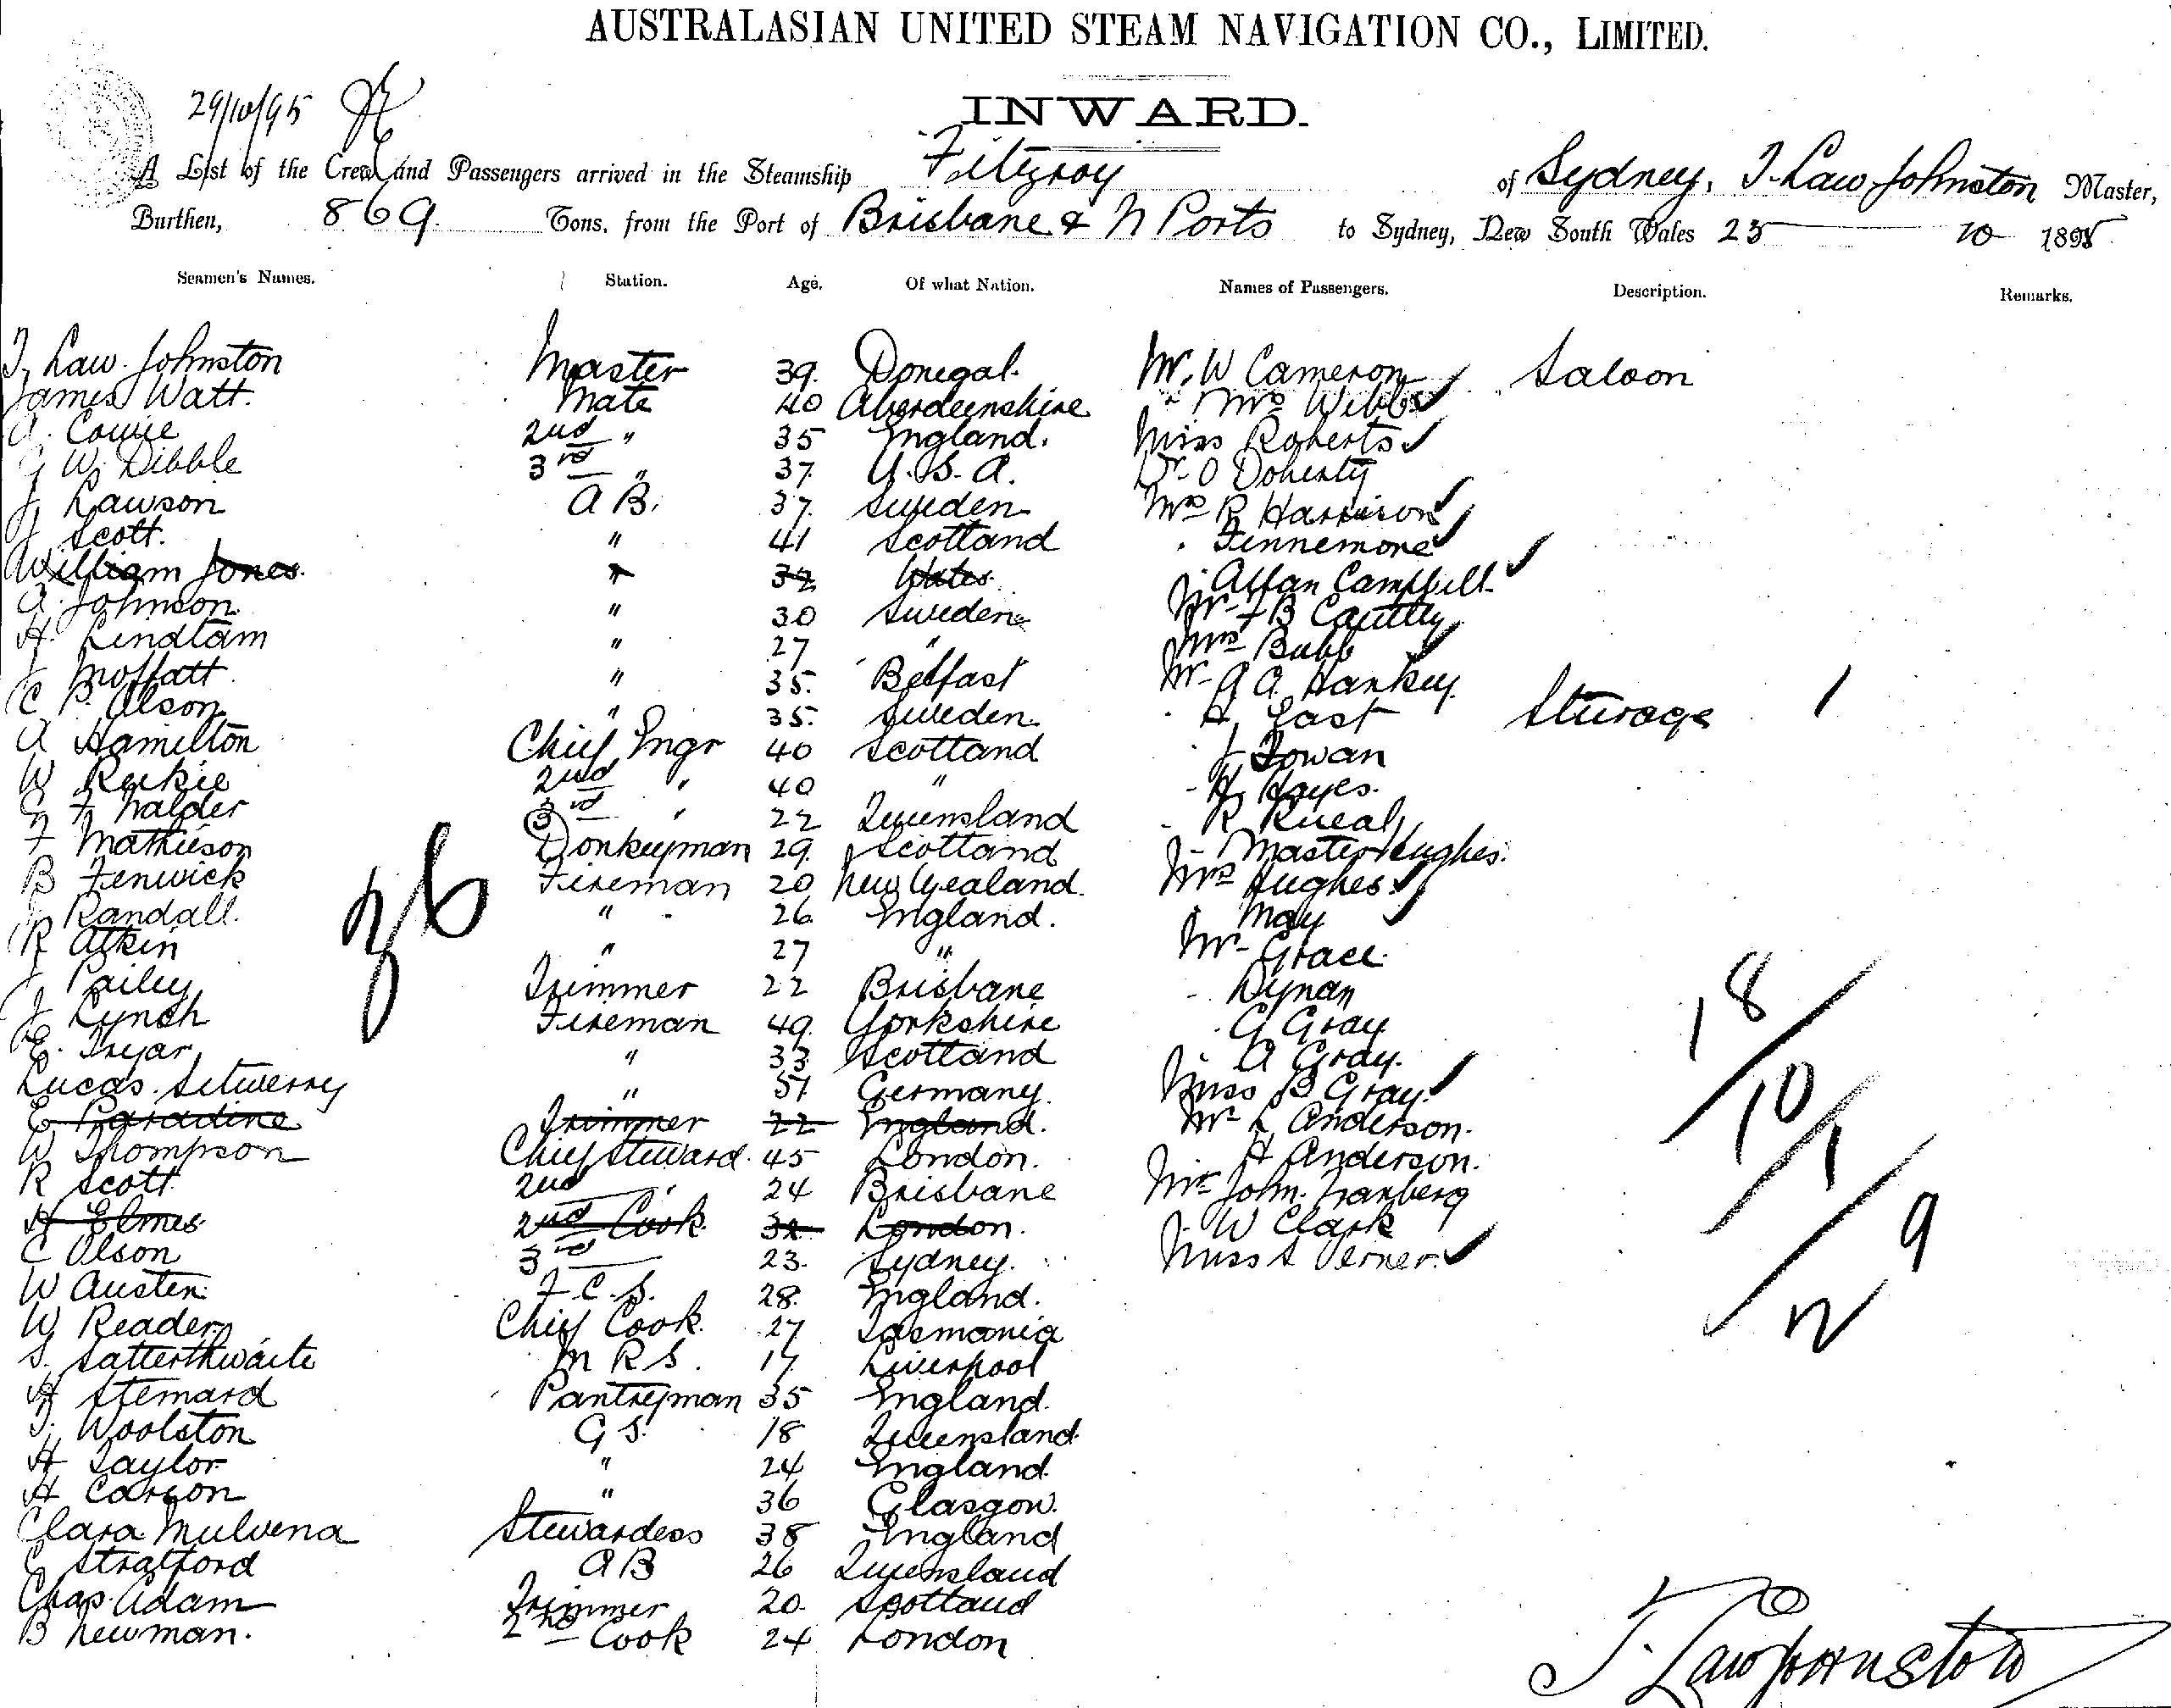 AUSTRALASIAN UNITED STEAM NAVIGATION CO., LIMITED.
29/10/95
INWARD.
A List of the Crew and Passengers arrived in the Steamship Fitzroy of Sydney, T. Law Johnston Master,
Burthen, 869 Tons, from the Port of Brisbane & N Ports to Sydney, New South Wales 25 10 1895
Seamen's Names. Station. Age. Of what Nation. Names of Passengers. Description. Remarks.
T. Law Johnston Master 39. Donegal. Mr. W Cameron Saloon
James Watt. Mate 40 Aberdeenshire " Mrs Webb
A. Cowie 2nd " 35 England. Miss Roberts
G W. Dibble 3rd " 37. U.S.A. Dr. O Doherty
J. Lawson A B. 37. Sweden Mrs R Harrison
J. Scott. " 41 Scotland " Finnemore
William Jones. " 32 Wales. " Allan Campbell
A. Johnson " 30 Sweden Mr F B
H. Lindtam " 27 " Mrs Bubb
J Moffatt " 35. Belfast Mr A A Hankey.
C P. Olson " 35. Sweden. " H. East Steerage 1
A Hamilton Chief Engr 40 Scotland " J Cowan
W Reekie 2nd " 40 " " H. Hayes.
G F Walder 3rd " 22 Queensland " R
F Mathieson Donkeyman 29. Scotland " Master Hughes.
B Fenwick Fireman 20 New Zealand. Mrs Hughes.
J Randall. " 26 England. " May
R Atkin " 27 " Mr Grace.
J. Pailey Trimmer 22 Brisbane " Dynan
J Lynch Fireman 49. Yorkshire " G Gray
E. Tryar " 33 Scotland " A Gray.
Lucas. " 51 Germany. Miss B Gray.
E Paradine Trimmer 22 England. Mr L Anderson.
W Thompson Chief Steward. 45 London. " H Anderson.
R Scott. 2nd " 24 Brisbane Mr John.
H Elmes 2nd Cook 32 London. " W Clark
C Olson 3rd 23. Sydney. Miss A Verner.
W Austen. F.C.S. 28. England.
W Reader Chief Cook. 27 Tasmania
S. Satterthwaite M R S. 17. Liverpool
H Stemard Pantryman 35 England.
T. Woolston G S. 18 Queensland.
H Taylor " 24 England.
H Carson " 36 Glasgow.
Clara Mulvena Stewardess 38 England
C Stratford A B 26 Queensland
Chas. Adam Trimmer 20. Scotland
B Newman. 2nd Cook 24 London
36
18/10/1/9/2
T. Law Johnston